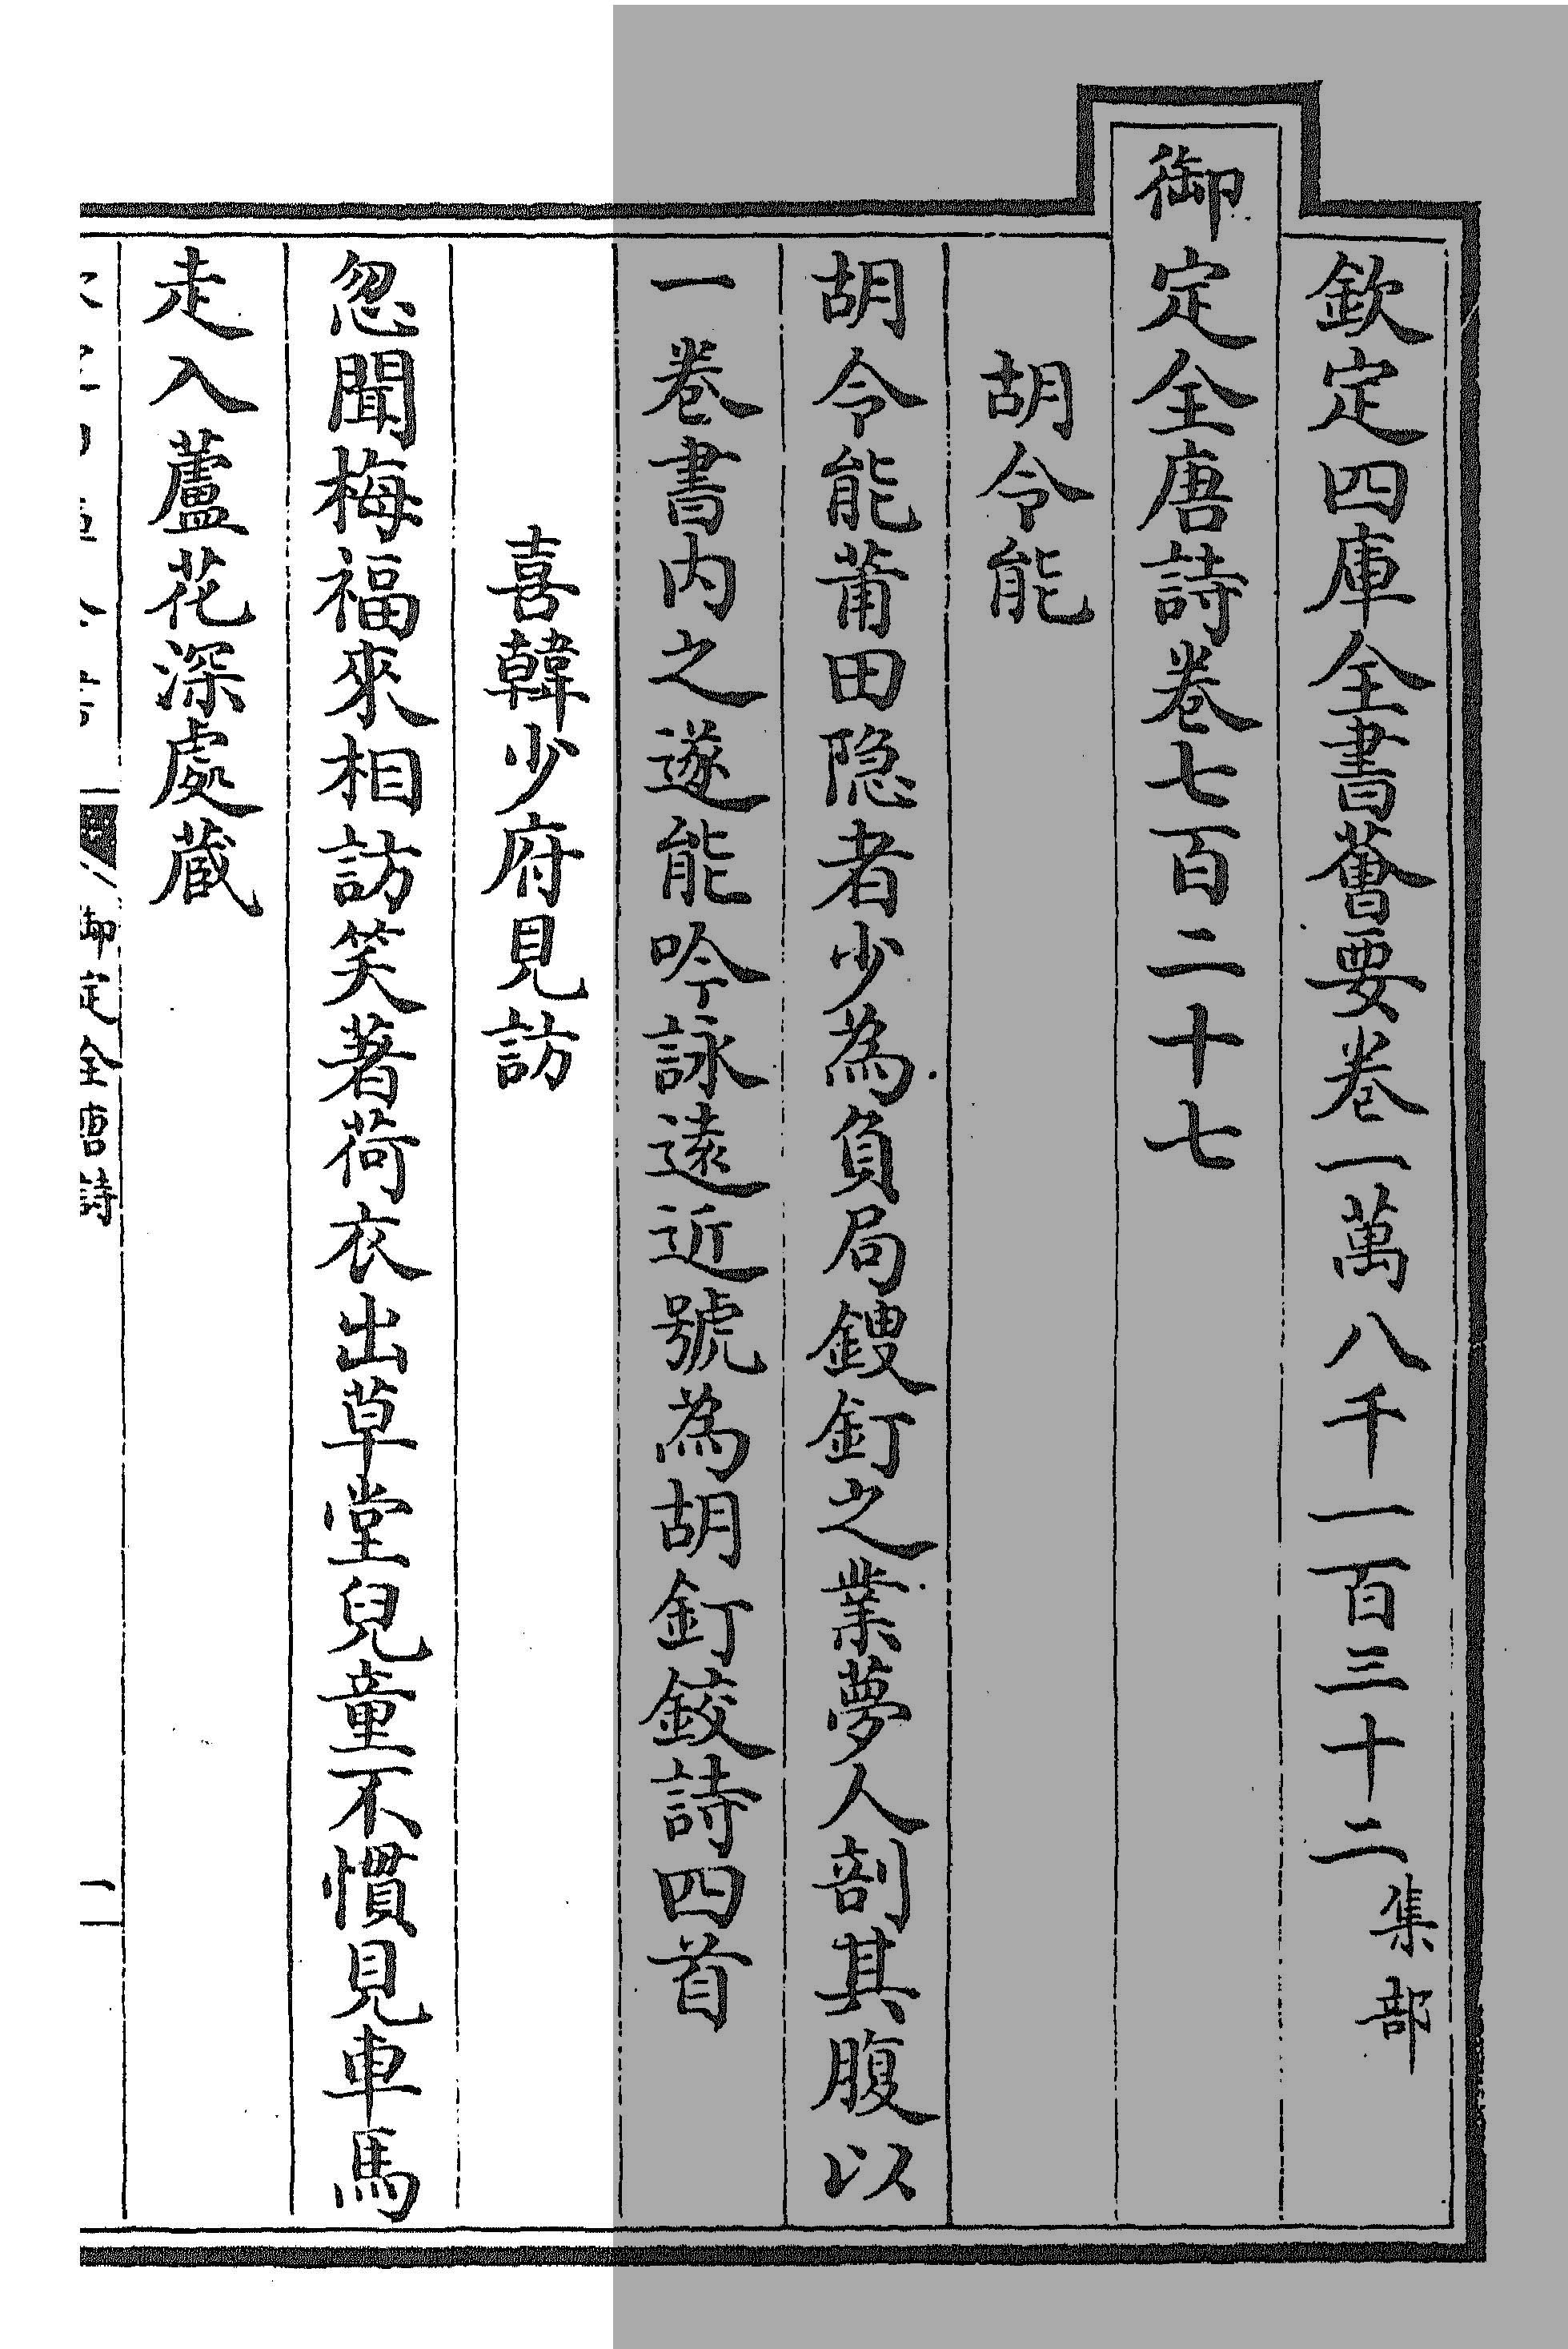 欽定四庫全書薈要卷一萬八千一百三十二集部
御定全唐詩卷七百二十七
胡令能
胡令能莆田隐者少為負局鎪釘之業夢人剖其腹以
一卷書内之遂能吟詠遠近號為胡釘鉸詩四首
喜韓少府見訪
忽聞梅福來相訪笑著荷衣出草堂兒童不慣見車馬
走入蘆花深處蔵
御定全唐詩